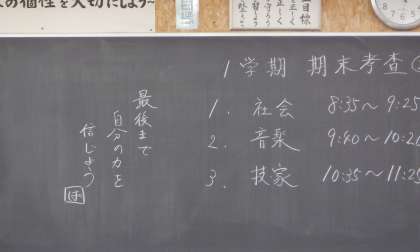 の個性を大切にしよう~
目標
1学期 期末考査
1. 社会 8:35~9:25
2. 音楽 9:40~10:2
3. 技家 10:35~11:25
最後まで
自分の力を
信じよう